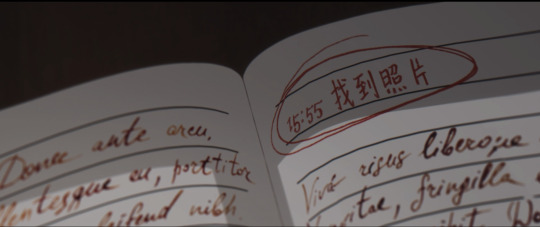 Donec ante arcu,
eu, porttitor
eifend nibh.
15:55 找到照片
Vive risus liberoque
vitae, fringilla